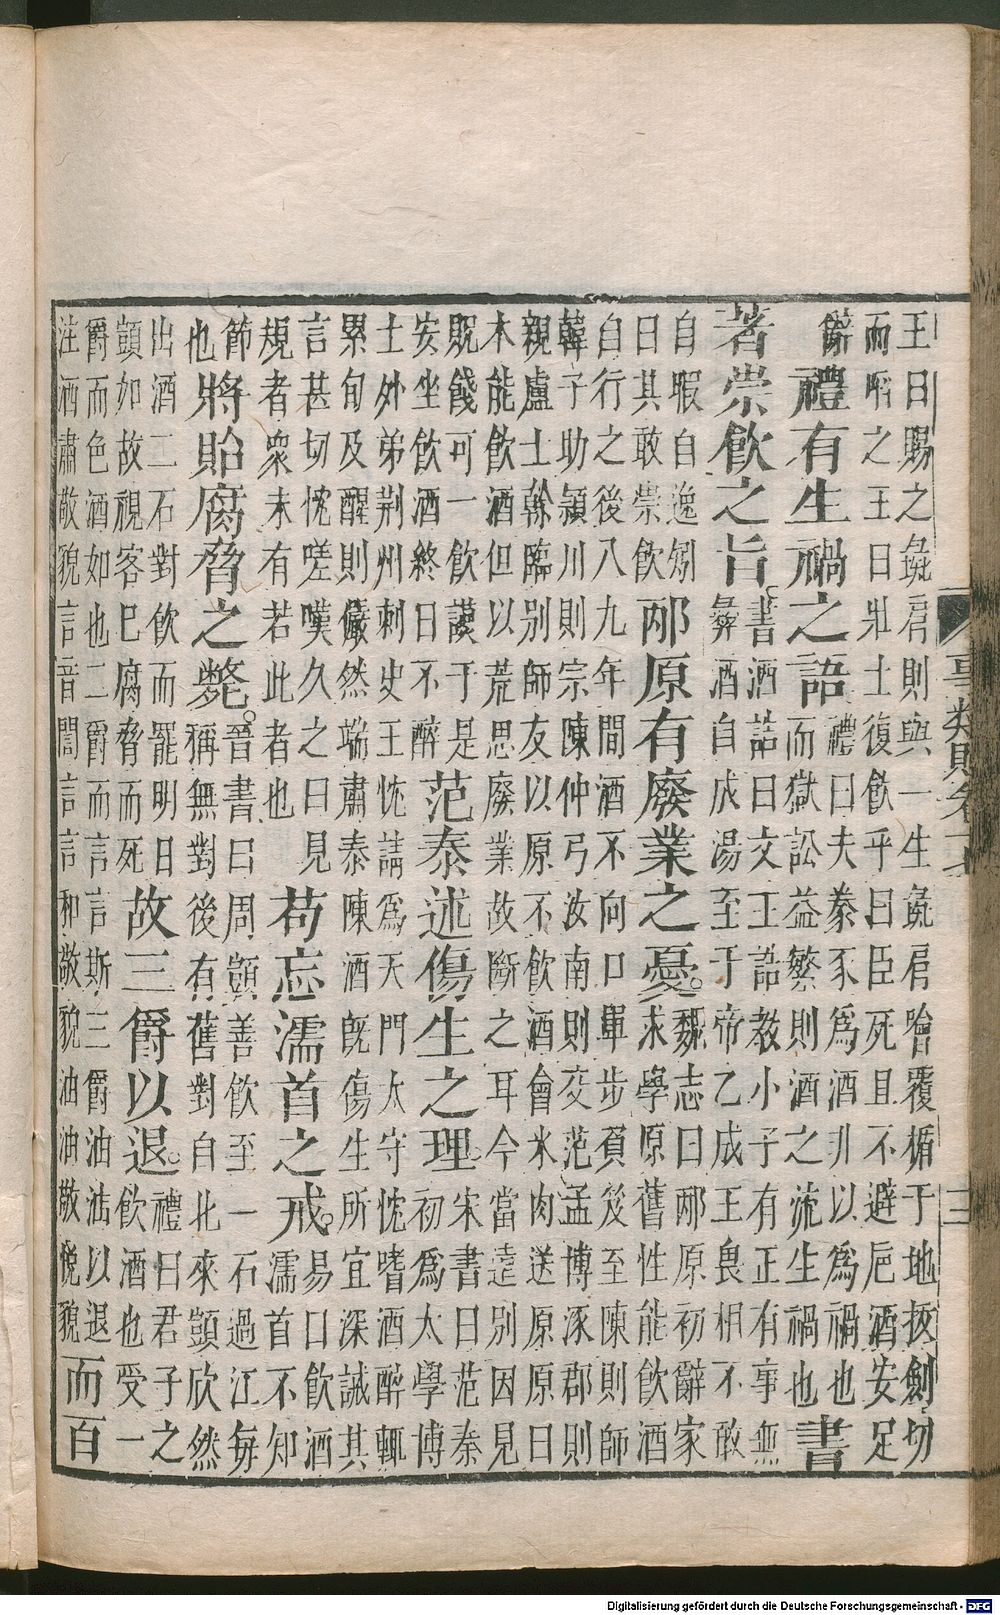 王曰賜之彘肩則與一生彘肩噲覆楯于地拔劍切
而啗之王曰壯士復飲乎曰臣死且不避巵酒安足
辭
禮有生禍之語
禮曰夫豢豕爲酒非以爲禍也
而獄訟益繁則酒之流生禍也
書
著崇飲之旨
書酒誥曰文王誥教小子有正有事無
彝酒自成湯至于帝乙成王畏相不敢
自暇自逸矧
曰其敢崇飲
邴原有廢業之憂
魏志曰邴原初辭家
求學原舊性能飲酒
自行之後八九年間酒不向口單步負笈至陳則師
韓子助潁川則宗陳仲弓汝南則交范孟博涿郡則
親盧士幹臨別師友以原不飲酒會米肉送原原曰
本能飲酒但以荒思廢業故斷之耳今當遠別因見
貺餞可一飲讌于是
安坐飲酒終日不醉
范泰述傷生之理
宋書曰范泰
初爲太學博
士外弟荊州刺史王忱請爲天門太守忱嗜酒醉輒
累旬及醒則儼然端肅泰陳酒既傷生所宜深誡其
言甚切忱嗟嘆久之曰見
規者衆未有若此者也
苟忘濡首之戒
易口飲酒
濡首不知
節
也
將貽腐脅之斃
晉書曰周顗善飲至一石過江每
稱無對後有舊對自北來顗欣然
出酒二石對飲而罷明日
顗如故視客已腐脅而死
故三爵以退
禮曰君子之
飲酒也受一
爵而色酒如也二爵而言言斯三爵油油以退
注洒肅敬貌言音誾言言和敬貌油油敬悅貌
而百
事類賦卷
三
Digitalisierung gefördert durch die Deutsche Forschungsgemeinschaft - DFG